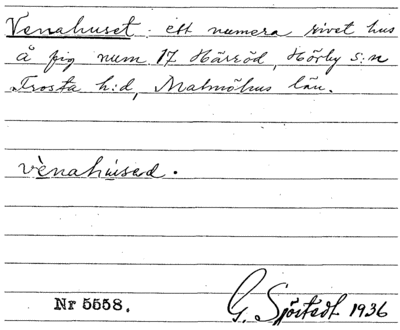 Venahuset: ett numera rivet hus
å fig num 17 Härröd, Hörby s:n
Frosta h:d, Malmöhus län.
vènahùsəd.
Nr 5558. G. Sjöstedt 1936